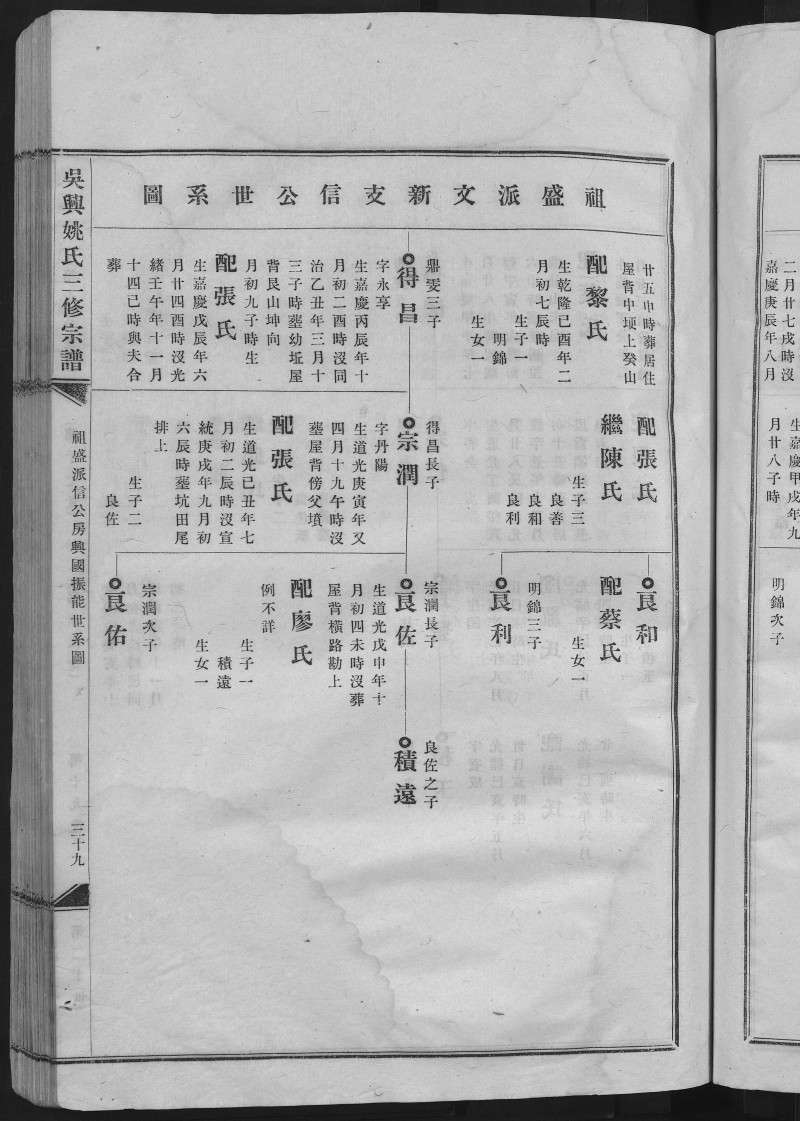 二月廿七戌時沒
嘉慶庚辰年八月
生嘉慶甲戌年九
月廿八子時
明錦次子
祖盛派文新支信公世系圖
廿五申時葬居住
屋背中埂上癸山
配黎氏
生乾隆己酉年二
月初七辰時
生子一
明錦
生女一
鼎雯三子
得昌
字永享
生嘉慶丙辰年十
月初二酉時沒同
治乙丑年三月十
三子時塟幼坵屋
背艮山坤向
配張氏
月初九子時生
生嘉慶戊辰年六
月廿四酉時沒光
緒壬午年十一月
十四己時與夫合
葬
配張氏
繼陳氏
生子三
良善
良和
良利
得昌長子
宗潤
字丹陽
生道光庚寅年又
四月十九午時沒
塟屋背傍父墳
配張氏
生道光己丑年七
月初二辰時沒宣
統庚戌年九月初
六辰時塟坑田尾
排上
生子二
良佐
良和
配蔡氏
生女一
明錦三子
良利
宗潤長子
良佐
生道光戊申年十
月初四未時沒葬
屋背橫路勘上
配廖氏
例不詳
生子一
積遠
生女一
宗潤次子
良佑
良佐之子
積遠
吳興姚氏三修宗譜
祖盛派信公房興國振能世系圖
三十九